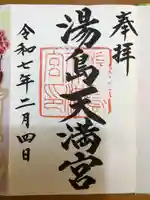 奉拝
湯島天満宮
令和七年二月四日